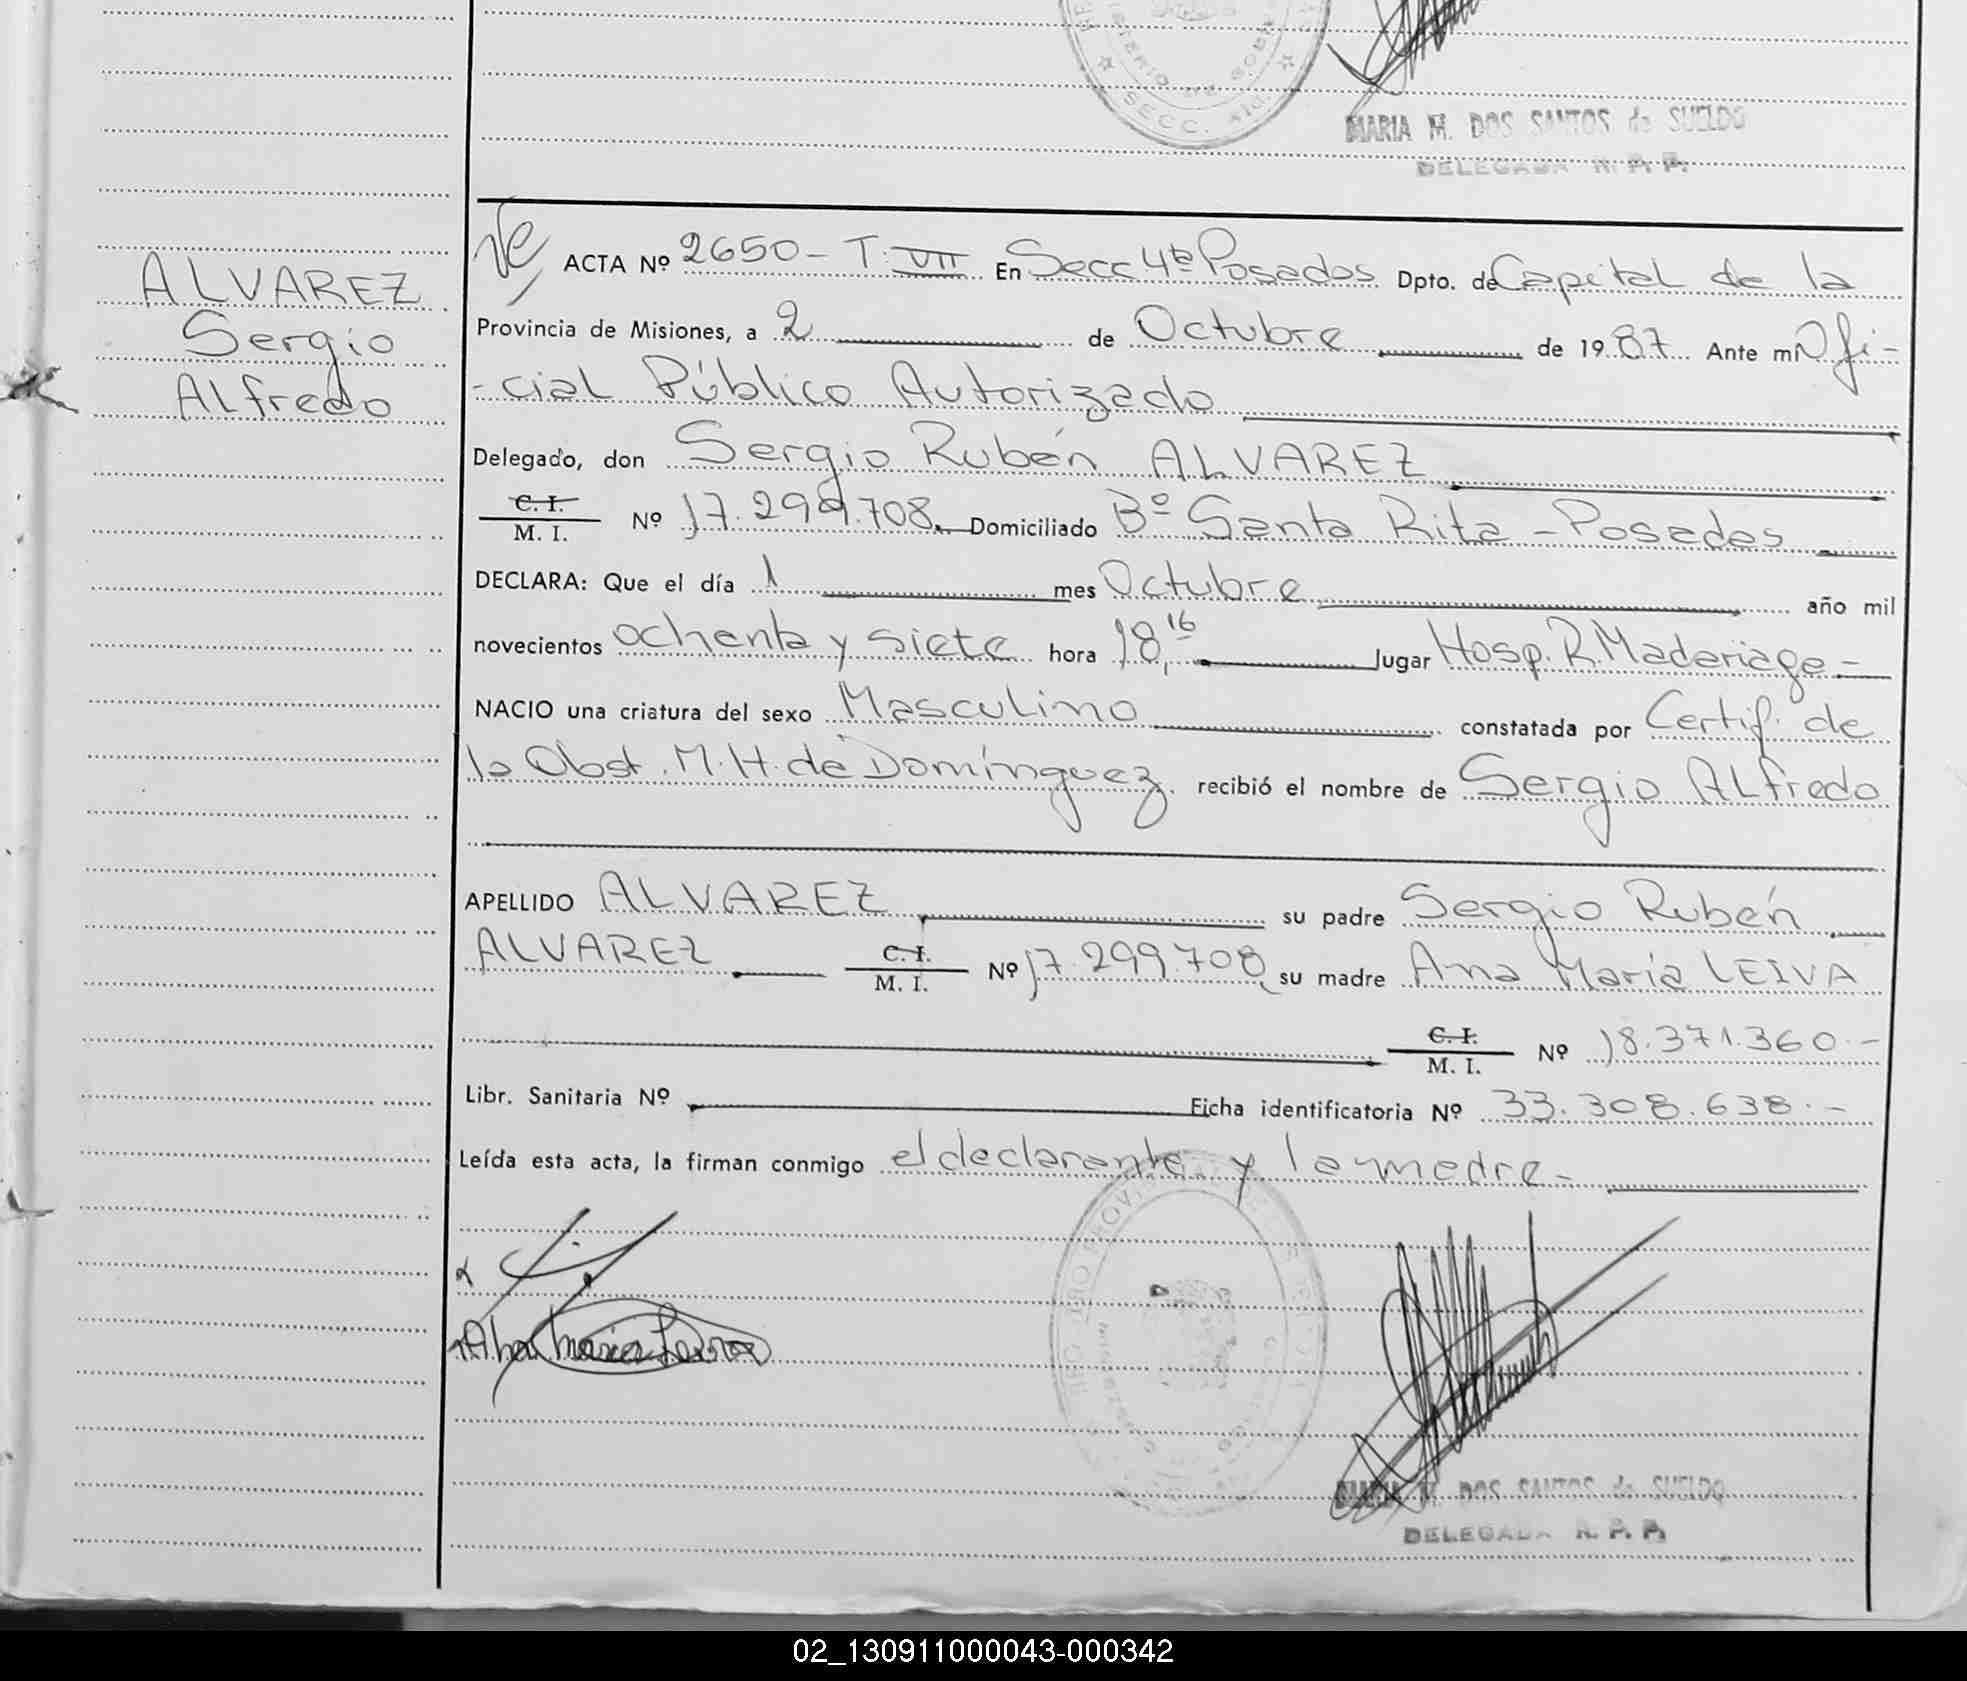 MINISTERIO DE GOBIERNO
SECC. 4ta.
MARIA M. DOS SANTOS de SUELDO
DELEGADA R. P. P.
ALVAREZ
Sergio
Alfredo
ACTA Nº 2650 - T. VII En Secc 4ta Posadas Dpto. de Capital de la
Provincia de Misiones, a 2 de Octubre de 1987 Ante mi Ofi-
-cial Público Autorizado
Delegado, don Sergio Rubén ALVAREZ
C. I.
M. I. Nº 17.299.708. Domiciliado Bº Santa Rita - Posadas
DECLARA: Que el día 1 mes Octubre año mil
novecientos ochenta y siete hora 18,16 lugar Hosp. R. Madariaga -
NACIO una criatura del sexo Masculino constatada por Certif. de
la Obst. M. H. de Domínguez recibió el nombre de Sergio Alfredo
APELLIDO ALVAREZ su padre Sergio Rubén
ALVAREZ C. I.
M. I. Nº 17.299.708 su madre Ana María LEIVA
C. I.
M. I. Nº 18.371.360.-
Libr. Sanitaria Nº Ficha identificatoria Nº 33.308.638.-
Leída esta acta, la firman conmigo el declarante y la madre -
Ana Maria Leiva
MARIA M. DOS SANTOS de SUELDO
DELEGADA R. P. P.
02_130911000043-000342